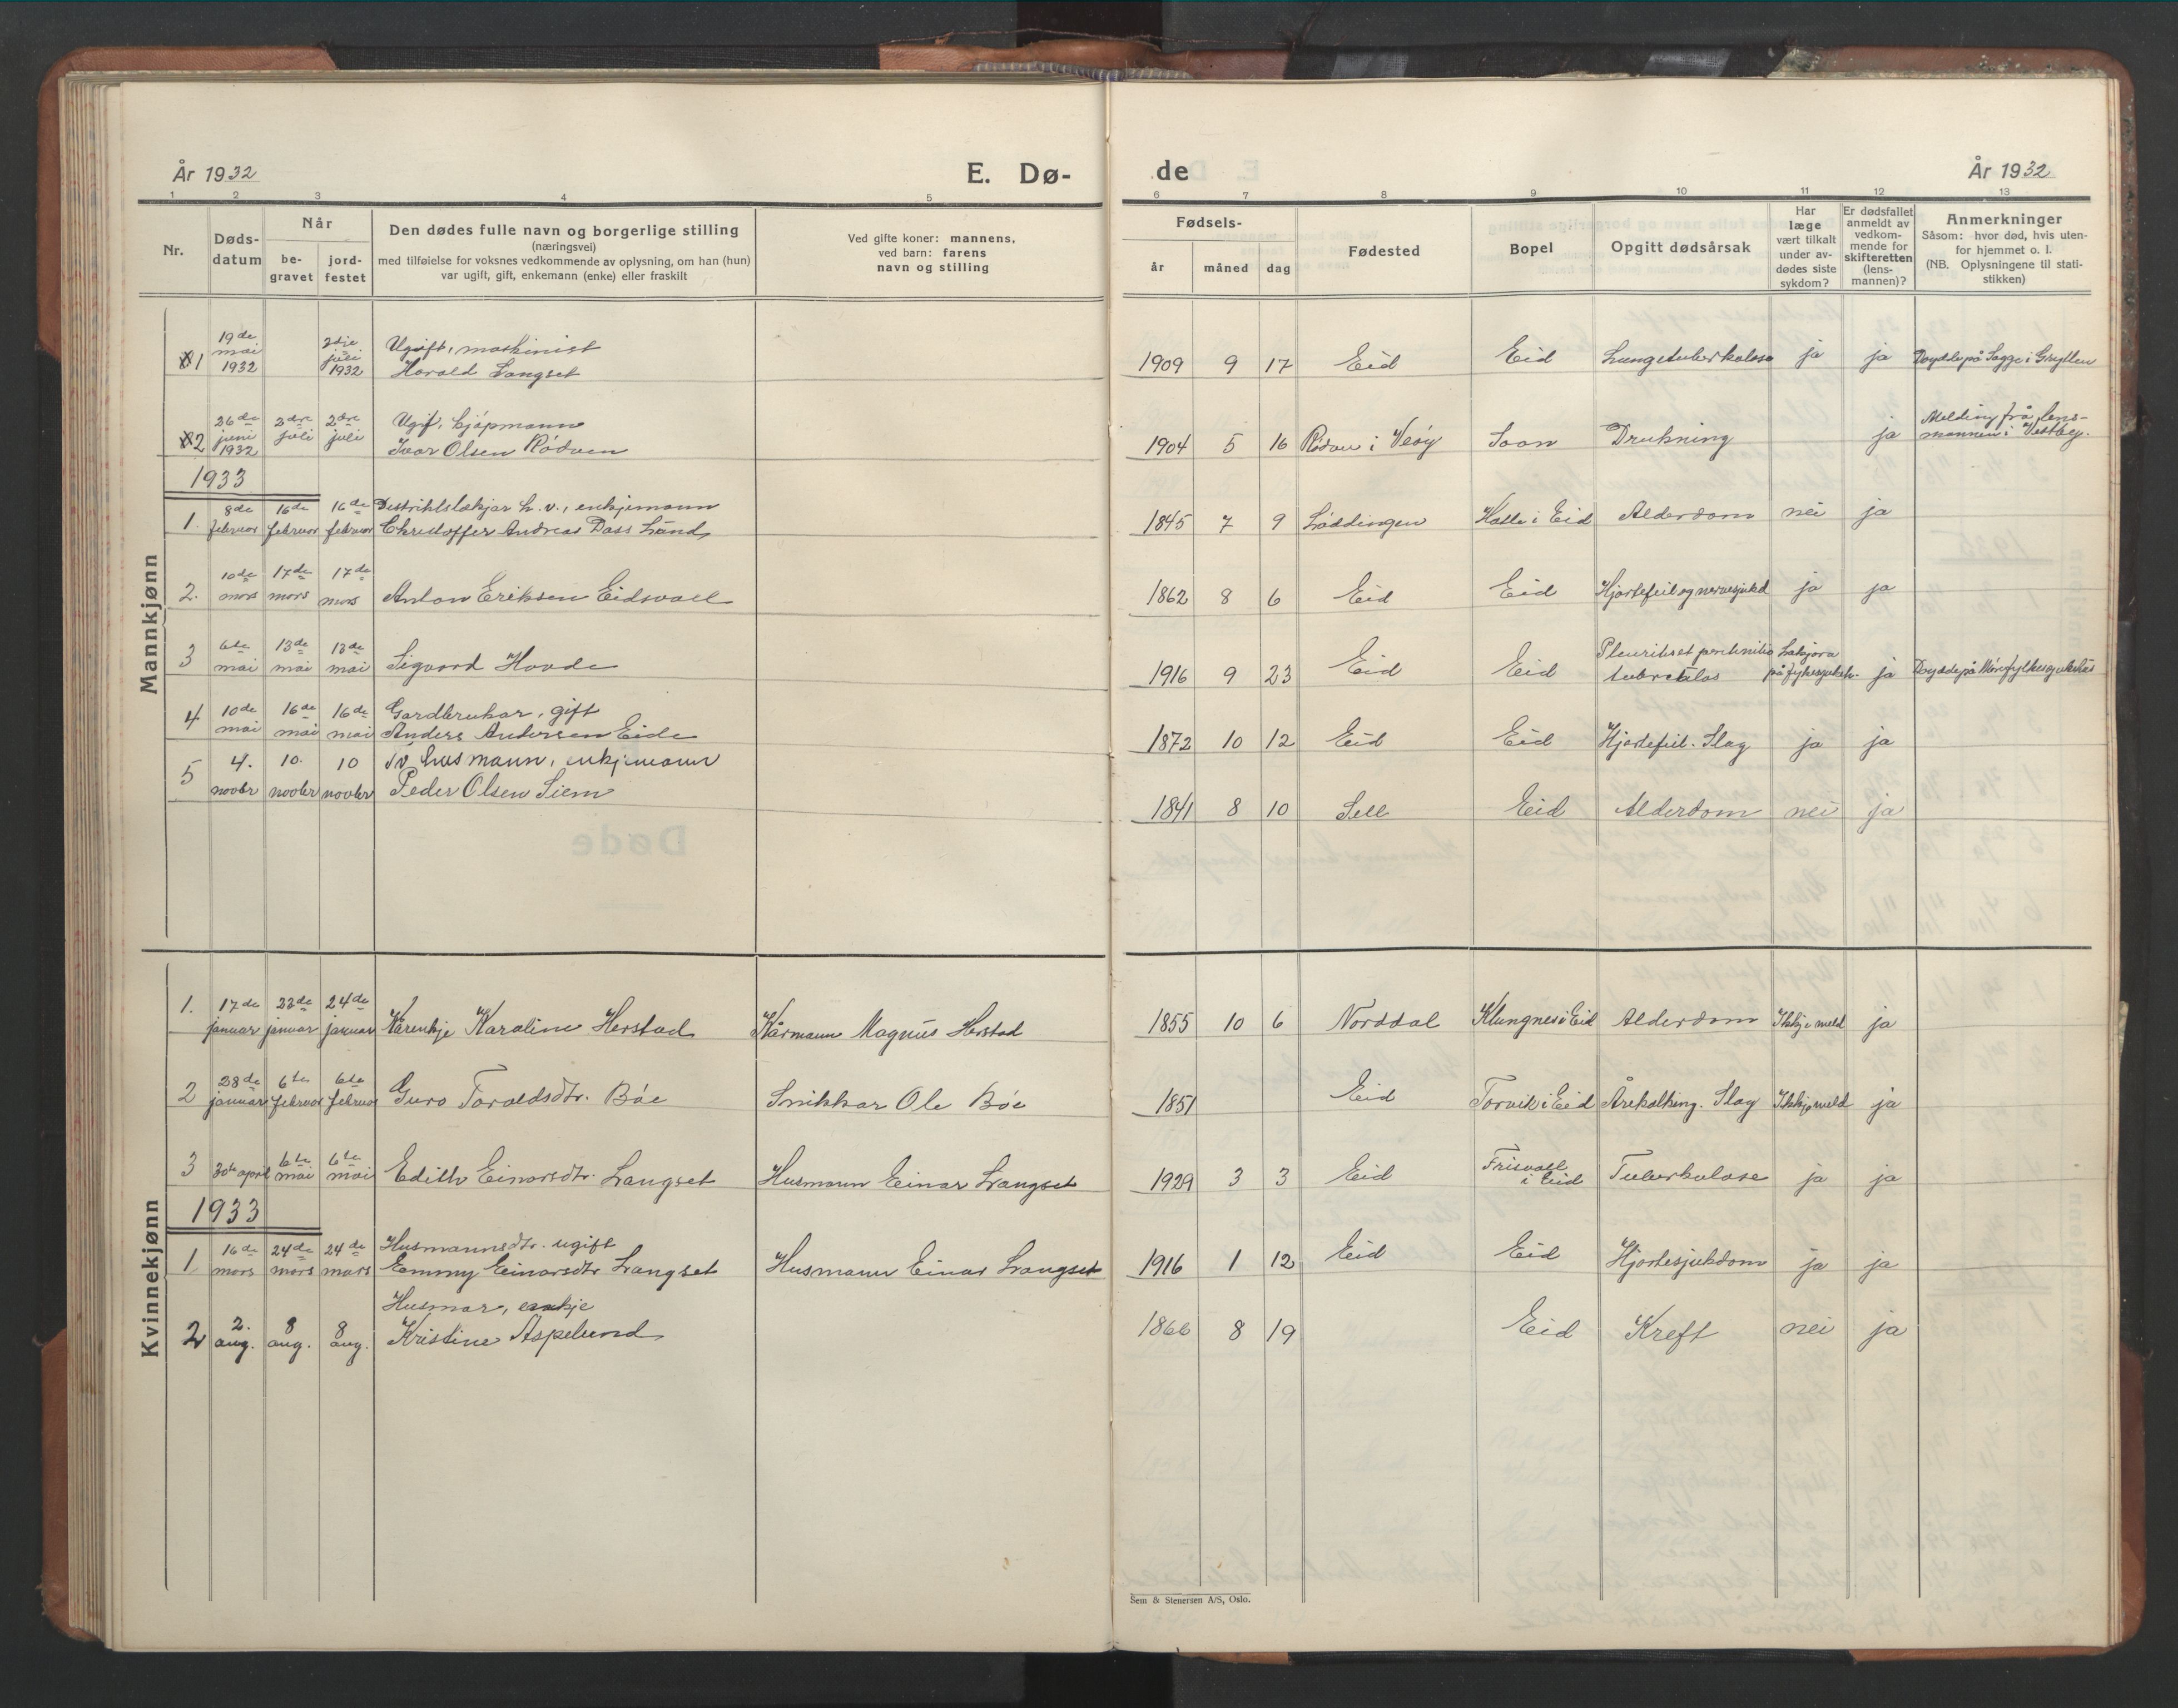 År 1932
E. Dø-
de
År 1932
1 2 3 4 5 6 7 8 9 10 11 12 13
Nr.
Døds-
datum
Når
be-
gravet
jord-
festet
Den dødes fulle navn og borgerlige stilling
(næringsvei)
med tilføielse for voksnes vedkommende av oplysning, om han (hun)
var ugift, gift, enkemann (enke) eller fraskilt
Ved gifte koner: mannens,
ved barn: farens
navn og stilling
Fødsels-
år måned dag
Fødested
Bopel
Opgitt dødsårsak
Har
læge
vært tilkalt
under av-
dødes siste
sykdom?
Er dødsfallet
anmeldt av
vedkom-
mende for
skifteretten
(lens-
mannen)?
Anmerkninger
Såsom: hvor død, hvis uten-
for hjemmet o. l.
(NB. Oplysningene til stati-
stikken)
Mannkjønn
1 19de mai 1932 juli 1932 Ugift, maskinist
Harald Langset 1909 9 17 Eid Eid Lungetuberkulose ja ja Døydde på Sagge i Grytten
2 26de juni 1932 2dre juli 2dre juli Ugif,
Ivar Olsen Rødven 1904 5 16 Rødven i Veøy Soon Drukning ja Melding frå lens-
mannen i Vestby.
1933
1. 8de februar 16de februar 16de februar Distriktslækjar h. v., enkjemann
Christoffer Andreas Dass Lund 1845 7 9 Løddingen Hatle i Eid Alderdom nei ja
2. 10de mars 17de mars 17de mars Anton Eriksen Eidsvall 1862 8 6 Eid Eid Hjartefeil og nervesjukd ja ja
3 6te mai 13de mai 13de mai Sigvard Hovde 1916 9 23 Eid Eid Pleuritis et
Lækjara ja Døydde på Mørefylkessjukehus
4 10de mai 16de mai 16de mai Gardbrukar, gift
Anders Andersen Eide 1872 10 12 Eid Eid Hjartefeil. Slag ja ja
5 4. novbr 10. novbr 10 novbr husmann, enkjemann
Peder Olsen Siem 1841 8 10 Sell Eid Alderdom nei ja
Kvinnekjønn
1. 17de januar 23de januar 24de januar Kårenkje Karoline Herstad Kårmann Magnus Herstad 1855 10 6 Norddal Klungnes i Eid Alderdom Ikkje meld ja
2 28de januar 6te februar 6te februar Guro Toraldsdtr. Bøe Snikkar Ole Bøe 1851 Eid Torvik i Eid Årekalking. Slag Ikkje meld ja
3 30te april 6te mai 6te mai Edith Einarsdtr. Langset Husmann Einar Langset 1929 3 3 Eid Frisvoll
i Eid Tuberkulose ja ja
1933
1 16de mars 24de mars 24de mars Husmannsdtr. ugift
Emmy Einarsdtr Langset Husmann Einar Langset 1916 1 12 Eid Eid Hjartesjukdom ja ja
2 2. aug. 8 aug. 8 aug. Husmor, enkje
Kristine Aspelund 1866 8 19 Eid Kreft nei ja
Sem & Stenersen A/S, Oslo.